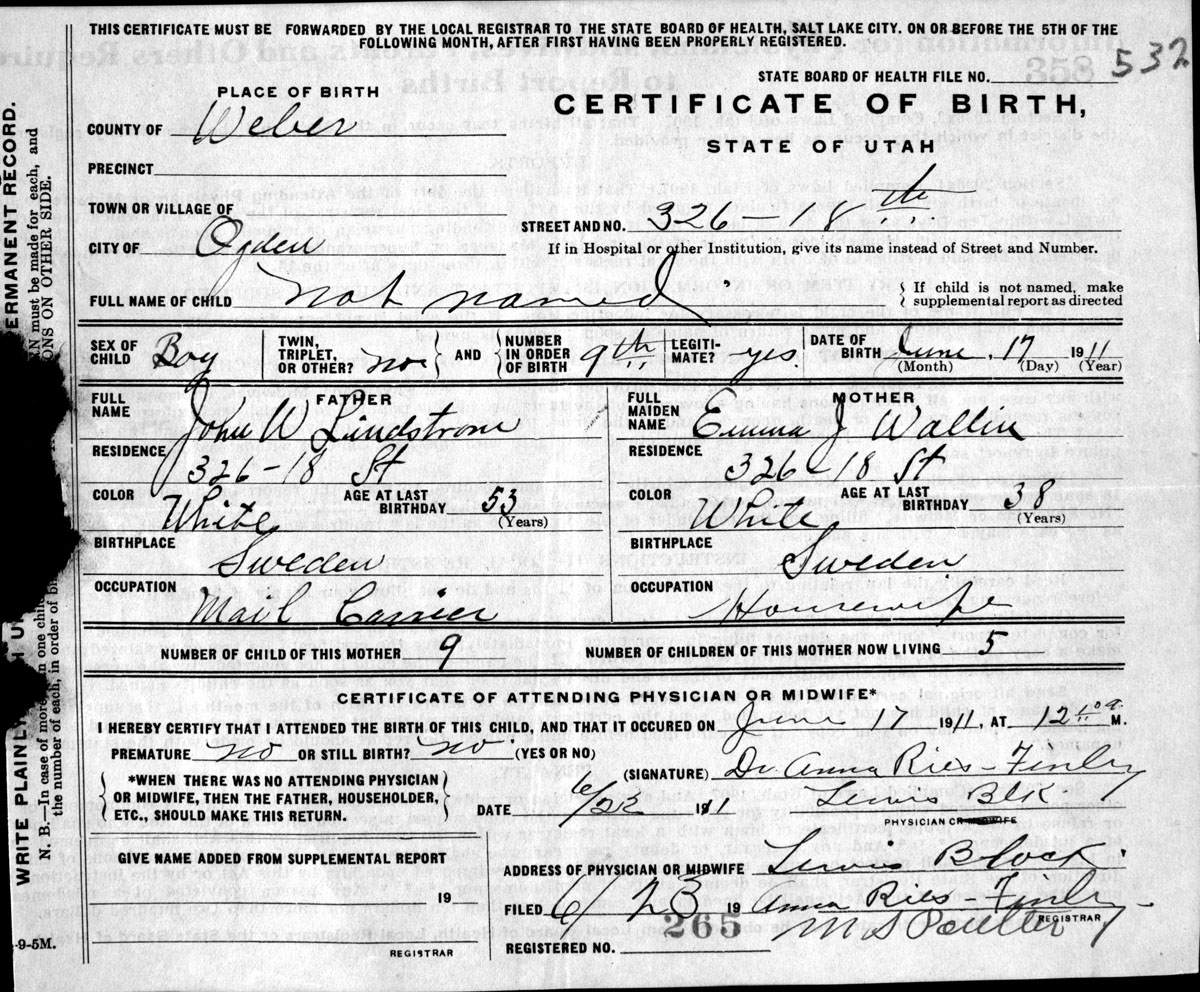 THIS CERTIFICATE MUST BE FORWARDED BY THE LOCAL REGISTRAR TO THE STATE BOARD OF HEALTH, SALT LAKE CITY. ON OR BEFORE THE 5TH OF THE
FOLLOWING MONTH, AFTER FIRST HAVING BEEN PROPERLY REGISTERED.
532
358
STATE BOARD OF HEALTH FILE NO.
PLACE OF BIRTH
CERTIFICATE OF BIRTH,
STATE OF UTAH
COUNTY OF Weber
PRECINCT
TOWN OR VILLAGE OF
STREET AND NO. 326-18th
CITY OF Ogden
If in Hospital or other Institution, give its name instead of Street and Number.
FULL NAME OF CHILD not named
If child is not named, make
supplemental report as directed
SEX OF CHILD Boy TWIN, TRIPLET, OR OTHER? no AND NUMBER IN ORDER OF BIRTH 9th LEGITI-MATE? yes DATE OF BIRTH June 17 1911
(Month) (Day) (Year)
FATHER MOTHER
FULL NAME John W Lindstrom FULL MAIDEN NAME Emma J Wallin
RESIDENCE 326-18 St RESIDENCE 326-18 St
COLOR White AGE AT LAST BIRTHDAY 53 (Years) COLOR White AGE AT LAST BIRTHDAY 38 (Years)
BIRTHPLACE Sweden BIRTHPLACE Sweden
OCCUPATION Mail Carrier OCCUPATION Housewife
NUMBER OF CHILD OF THIS MOTHER 9 NUMBER OF CHILDREN OF THIS MOTHER NOW LIVING 5
CERTIFICATE OF ATTENDING PHYSICIAN OR MIDWIFE*
I HEREBY CERTIFY THAT I ATTENDED THE BIRTH OF THIS CHILD, AND THAT IT OCCURED ON June 17 1911, AT. 12 10 a. M.
PREMATURE no OR STILL BIRTH? no (YES OR NO)
(SIGNATURE) Dr Anna Ries-Finley
*WHEN THERE WAS NO ATTENDING PHYSICIAN
OR MIDWIFE, THEN THE FATHER, HOUSEHOLDER,
ETC., SHOULD MAKE THIS RETURN.
DATE 6/23 191 1 Lewis Blk
PHYSICIAN OR MIDWIFE
GIVE NAME ADDED FROM SUPPLEMENTAL REPORT
19
REGISTRAR
ADDRESS OF PHYSICIAN OR MIDWIFE Lewis Block
FILED 6 23 19 Anna Ries-Finley
REGISTRAR
265
REGISTERED NO.
WRITE PLAINLY,
ERMANENT RECORD.
N. B.—In case of more
in one chil
RN must be made for each, and
the number of each, in order of bi
ONS ON OTHER SIDE.
-9-5M.